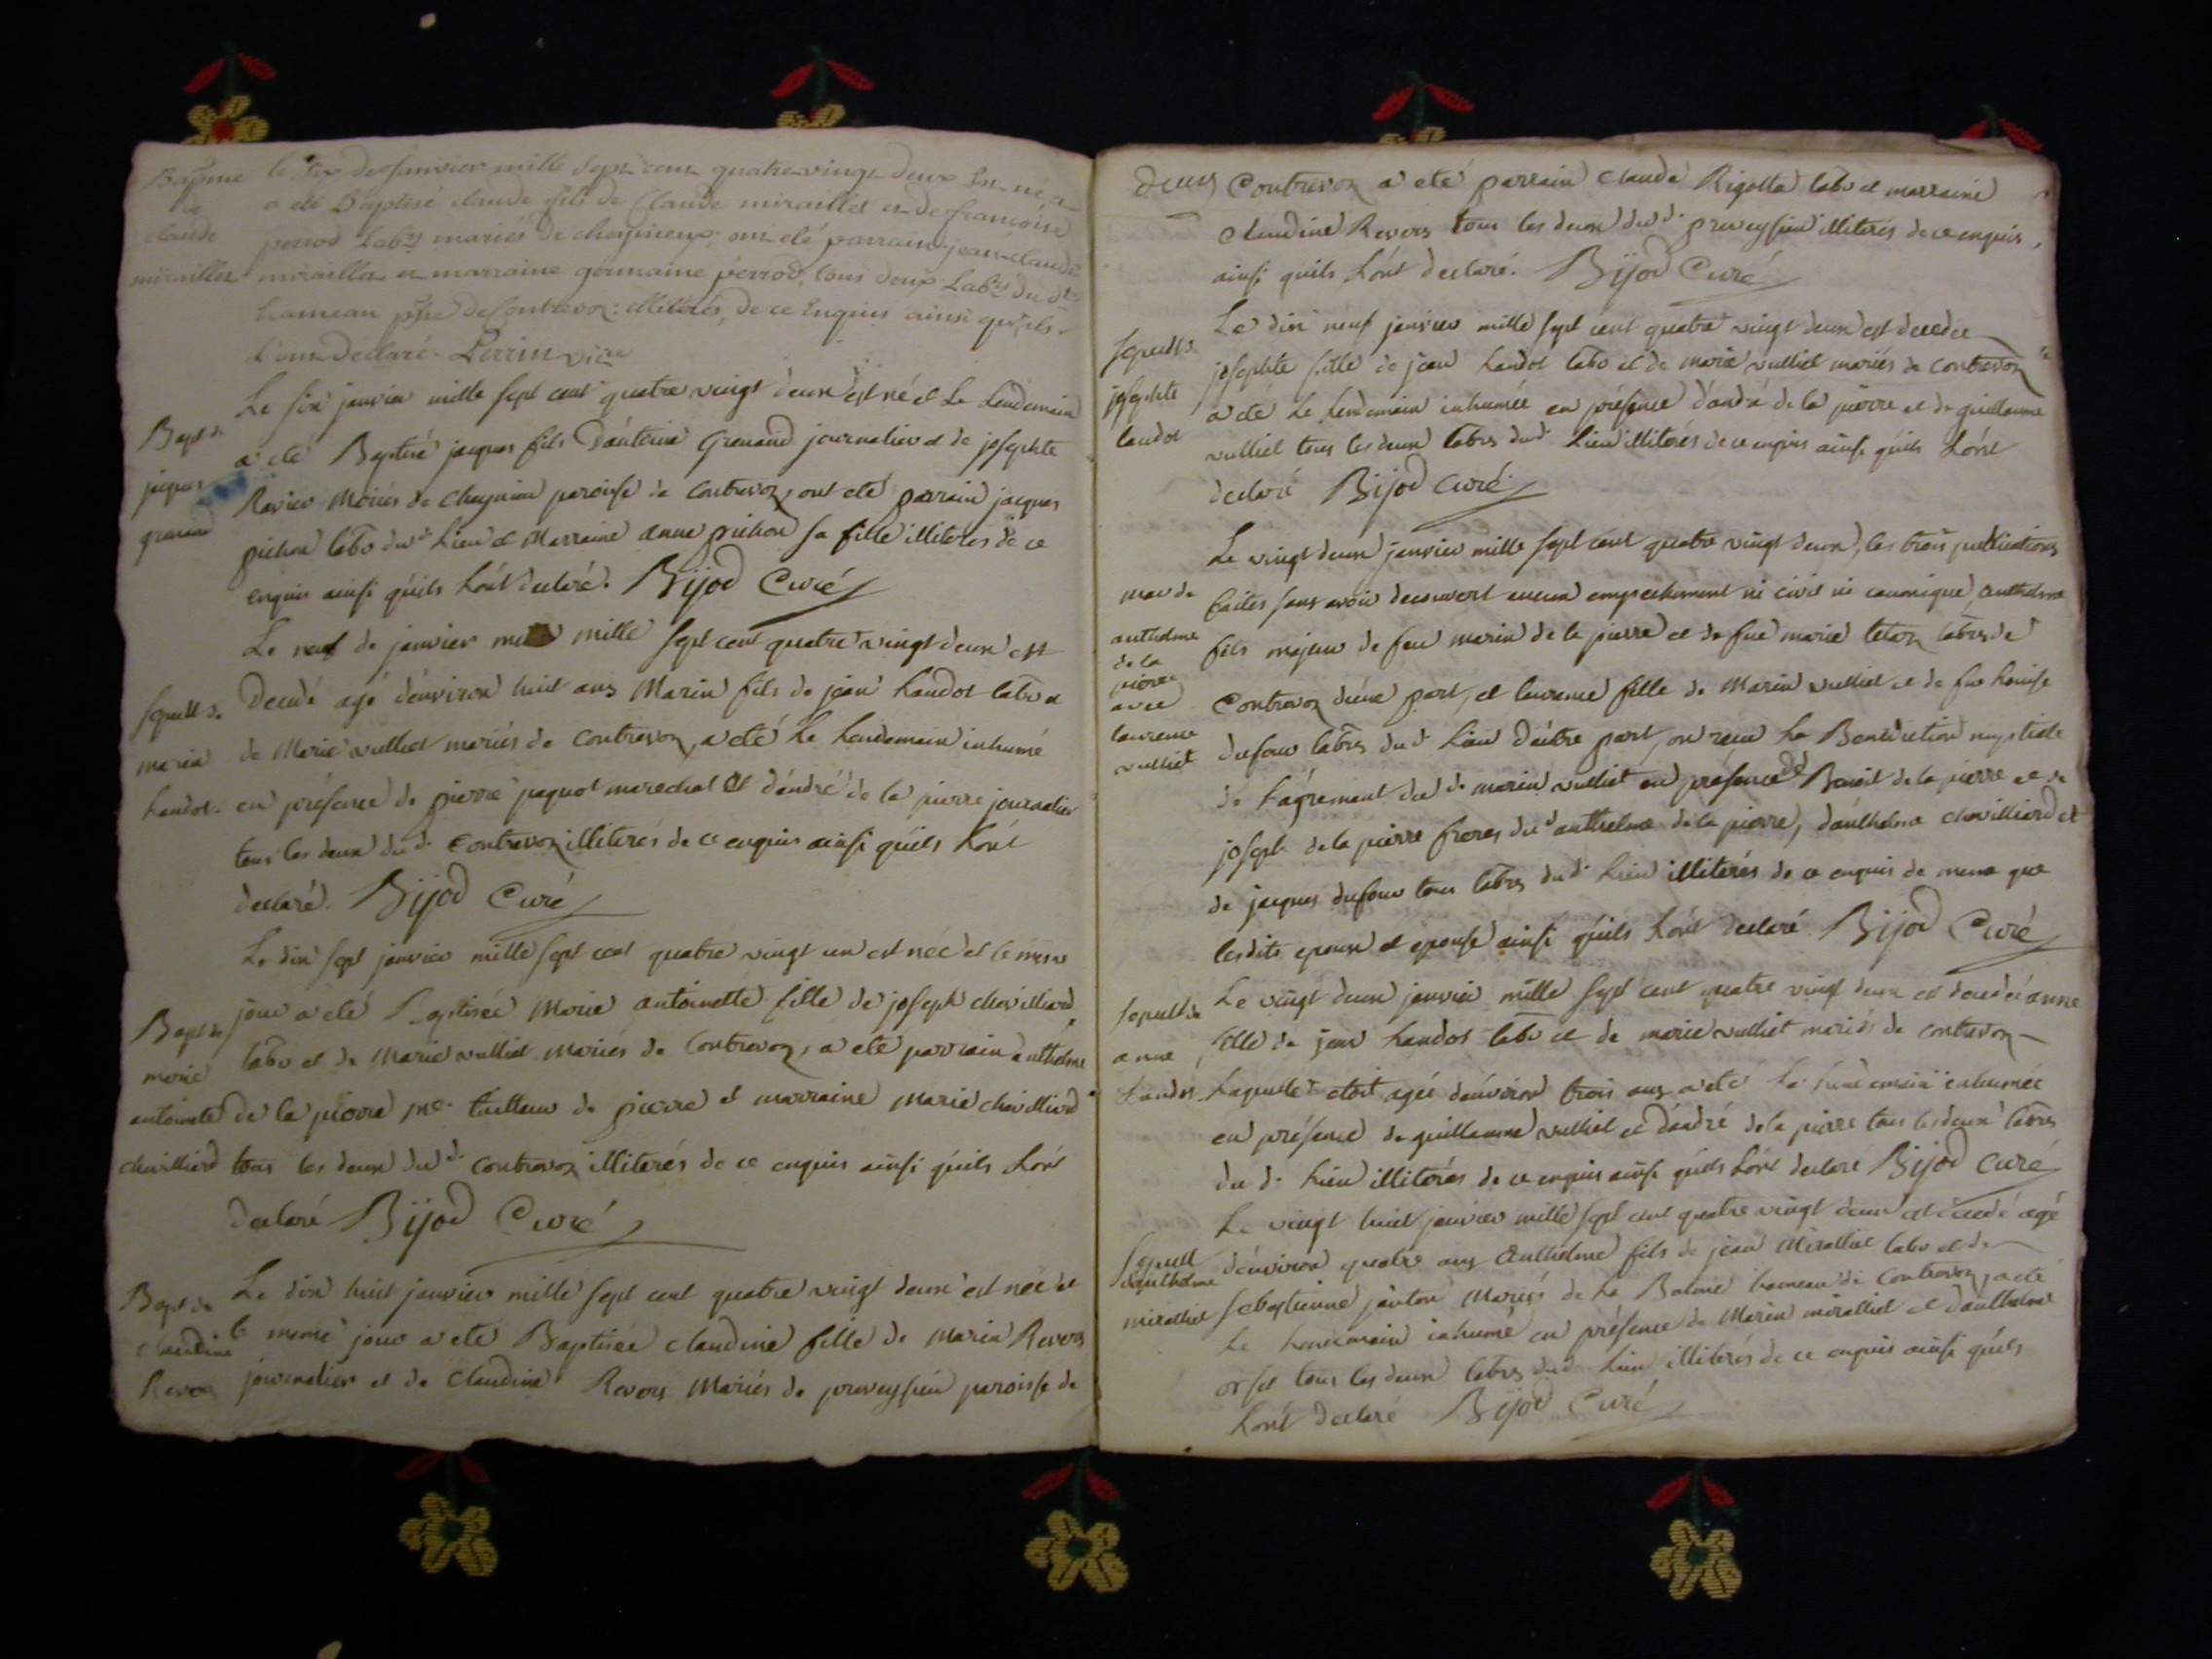 Bapme le six de Janvier mille sept cent quatre-vingt deux est né et
de a été Baptisé claude fils de Claude miraillet et de françoise
claude perrod Labrs mariés de cheynieux; ont été parrain jean claude
miraillet miraillet et marraine germaine perrod, tous deux Labrs du dt
hameau psse de Contrevoz: illitérés, de ce Enquis ainsi qu'ils
L'ont Declaré. Perrin vicre
Le six janvier mille sept cent quatre vingt deux est né et Le Lendemain
Bapt de
a été Baptisé jacques fils D'antoine Grenand journalier et de josephte
jacques Ravier Mariés de Cheynieu paroisse de Contrevoz, ont eté parrain jacques
grenand pichon labr dud. Lieu et Marraine anne pichon sa fille illiterés de ce
enquis ainsi quils L'ont declaré. Bijod Curé
Le neuf de janvier mille sept cent quatre vingt deux est
sepult de Decedé agé d'environ huit ans Marin fils de jean Landot labr et
marin de Marie vulliet mariés de contrevoz, a eté Le Lendemain inhumé
Landot. en présence de pierre paquot marechal et d'andré de la pierre journalier
tous les deux dud. Contrevoz illiterés de ce enquis ainsi quils L'ont
declaré. Bijod Curé
Le dix sept janvier mille sept cent quatre vingt un est née et le meme
Bapt de jour a été Baptisée Marie antoinette fille de joseph chevilliard
marie labr et de Marie vulliet Mariés de Contrevoz, a eté parrain anthelme
antoinete de la pierre me. tailleur de pierre et marraine Marie chevilliard
chevilliard tous les deux dud. Contrevoz illiterés de ce enquis ainsi quils L'ont
declaré Bijod Curé
Bapt de Le dix huit janvier mille sept cent quatre vingt deux est née et
claudine le meme jour a eté Baptisée claudine fille de Marin Revers
Revers journalier et de Claudine Revers Mariés de preveyssieu paroisse de
deux Contrevoz a eté parrain Claude Rigollet labr et marraine
Claudine Revers tous les deux dud. preveyssieu illiterés de ce enquis,
ainsi quils L'ont declaré. Bijod Curé
Le dix neuf janvier mille sept cent quatre vingt deux est decedée
sepult de josephte fille de jean Landot labr et de marie vulliet mariés de contrevoz
josephte a eté Le Lendemain inhumée en présence d'andré de la pierre et de guillaume
landot vulliet tous les deux labrs dud. Lieu illiterés de ce enquis ainsi quils L'ont
declaré Bijod Curé
Le vingt deux janvier mille sept cent quatre vingt deux, les trois publications
mar de faites sans avoir decouvert aucun empechement ni civil ni canonique, anthelme
anthelme fils majeur de feu marin de la pierre et de fue marie labrs de
de la
pierre
avec Contrevoz d'une part, et laurence fille de Marin vulliet et de fue Louise
laurence dufour labrs dud. Lieu d'autre part, on recu La Benediction nuptiale
vulliet de L'agrement dud. marin vulliet en présence de Benoit de la pierre et de
joseph de la pierre freres dud. anthelme de la pierre, d'anthelme chevilliard et
de jacques dufour tous labrs dud. Lieu illiterés de ce enquis de meme que
lesdits epoux et epouse ainsi quils L'ont declaré Bijod Curé
sepult de Le vingt deux janvier mille sept cent quatre vingt deux est decedée anne
anne fille de jean Landot labr et de marie vulliet mariés de contrevoz
Landot Laquelle etoit agée d'environ trois ans a eté Le Lendemain inhumée
en présence de guillaume vulliet et d'andré de la pierre tous les deux labrs
dud. Lieu illiterés de ce enquis ainsi quils L'ont declaré Bijod Curé
Le vingt huit janvier mille sept cent quatre vingt deux est decedé agé
sepult d'anthelme d'environ quatre ans Anthelme fils de jean Miralliet labr et de
miralliet sebastienne janton Mariés de La Balme hameau de Contrevoz, a eté
Le Lendemain inhumé en présence de Marin miralliet et d'anthelme
orset tous les deux labrs dud. Lieu illiterés de ce enquis ainsi quils
L'ont declaré Bijod Curé